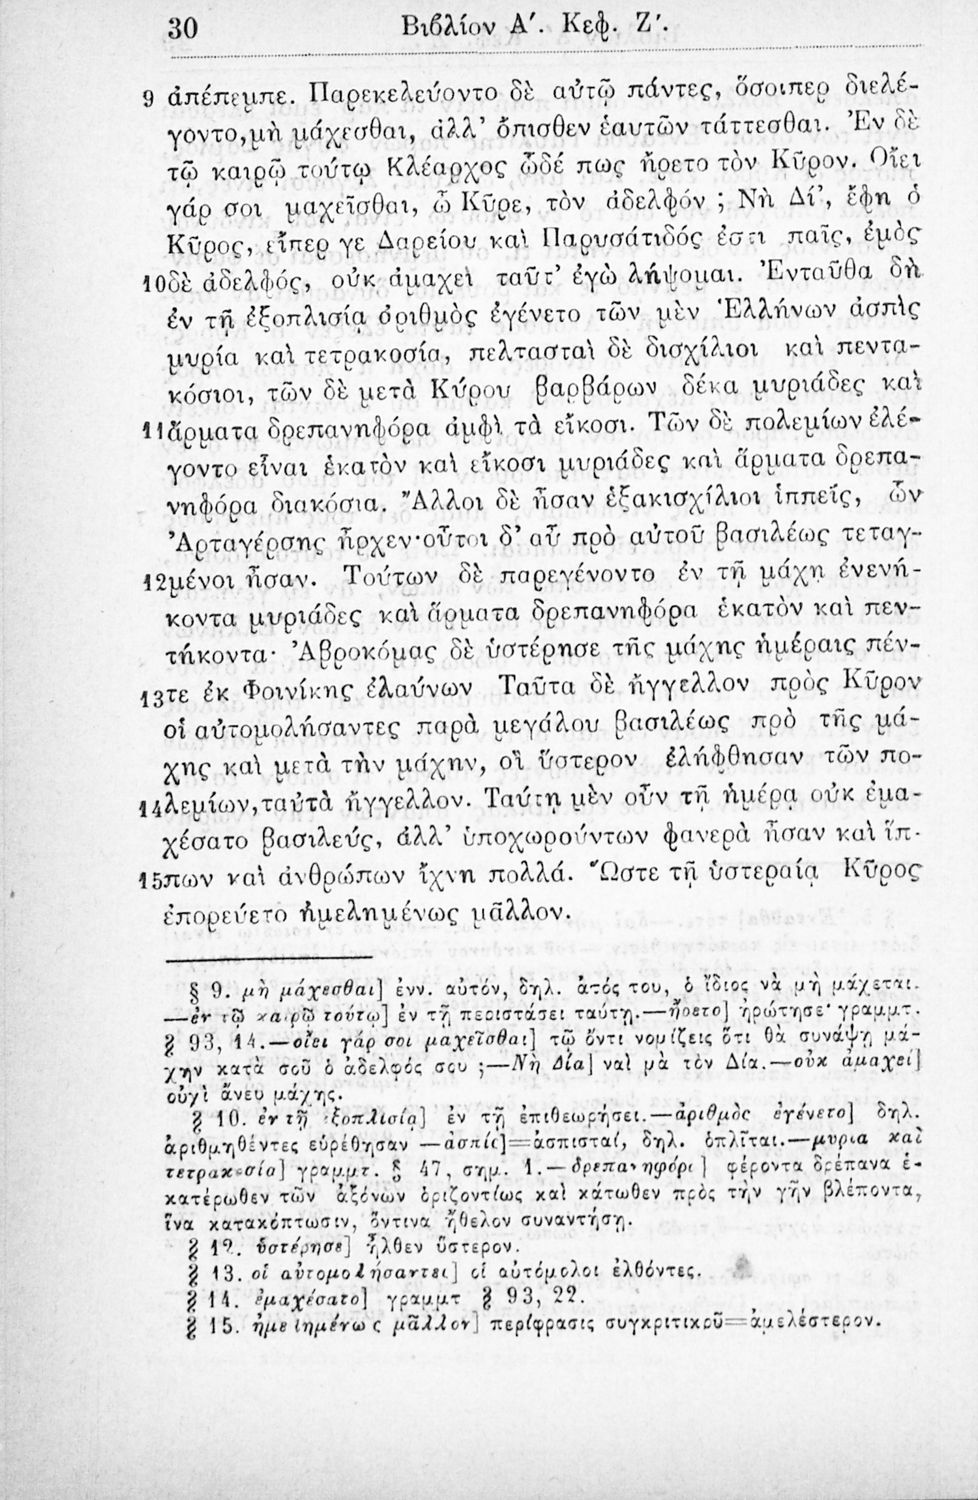 30 Βιβλίον Α΄. Κεφ. Ζ΄.
9 ἀπέπεμπε. Παρεκελεύοντο δὲ αὐτῷ πάντες, ὅσοιπερ διελέ-
γοντο, μὴ μάχεσθαι, ἀλλ’ ὄπισθεν ἑαυτῶν τάττεσθαι. Ἐν δὲ
τῷ καιρῷ τούτῳ Κλέαρχος ὧδέ πως ἤρετο τὸν Κῦρον. Οἴει
γάρ σοι μαχεῖσθαι, ὦ Κῦρε, τὸν ἀδελφόν ; Νὴ Δί’, ἔφη ὁ
Κῦρος, εἴπερ γε Δαρείου καὶ Παρυσάτιδός ἐστι παῖς, ἐμὸς
10 δὲ ἀδελφός, οὐκ ἀμαχεὶ ταῦτ’ ἐγὼ λήψομαι. Ἐνταῦθα δὴ
ἐν τῇ ἐξοπλισίᾳ ἀριθμὸς ἐγένετο τῶν μὲν Ἑλλήνων ἀσπὶς
μυρία καὶ τετρακοσία, πελτασταὶ δὲ δισχίλιοι καὶ πεντα-
κόσιοι, τῶν δὲ μετὰ Κύρου βαρβάρων δέκα μυριάδες καὶ
11 ἅρματα δρεπανηφόρα ἀμφὶ τὰ εἴκοσι. Τῶν δὲ πολεμίων ἐλέ-
γοντο εἶναι ἑκατὸν καὶ εἴκοσι μυριάδες καὶ ἅρματα δρεπα-
νηφόρα διακόσια. Ἄλλοι δὲ ἦσαν ἑξακισχίλιοι ἱππεῖς, ὧν
Ἀρταγέρσης ἦρχεν· οὗτοι δ’ αὖ πρὸ αὐτοῦ βασιλέως τεταγ-
12 μένοι ἦσαν. Τούτων δὲ παρεγένοντο ἐν τῇ μάχῃ ἐνενή-
κοντα μυριάδες καὶ ἅρματα δρεπανηφόρα ἑκατὸν καὶ πεν-
τήκοντα· Ἀβροκόμας δὲ ὑστέρησε τῆς μάχης ἡμέραις πέν-
13 τε ἐκ Φοινίκης ἐλαύνων Ταῦτα δὲ ἤγγελλον πρὸς Κῦρον
οἱ αὐτομολήσαντες παρὰ μεγάλου βασιλέως πρὸ τῆς μά-
χης καὶ μετὰ τὴν μάχην, οἳ ὕστερον ἐλήφθησαν τῶν πο-
14 λεμίων, ταὐτὰ ἤγγελλον. Ταύτῃ μὲν οὖν τῇ ἡμέρᾳ οὐκ ἐμα-
χέσατο βασιλεύς, ἀλλ’ ὑποχωρούντων φανερὰ ἦσαν καὶ ἵπ-
15 πων καὶ ἀνθρώπων ἴχνη πολλά. Ὥστε τῇ ὑστεραίᾳ Κῦρος
ἐπορεύετο ἠμελημένως μᾶλλον.
§ 9. μὴ μάχεσθαι] ἐνν. αὐτόν, δηλ. ἀτός του, ὁ ἴδιος νὰ μὴ μάχεται.
—ἐν τῷ καιρῷ τούτῳ] ἐν τῇ περιστάσει ταύτῃ.—ἤρετο] ἠρώτησε· γραμμτ.
§ 93, 14.—οἴει γάρ σοι μαχεῖσθαι] τῷ ὄντι νομίζεις ὅτι θὰ συνάψῃ μά-
χην κατὰ σοῦ ὁ ἀδελφός σου ;—Νὴ Δία] ναὶ μὰ τὸν Δία.—οὐκ ἀμαχεὶ]
οὐχὶ ἄνευ μάχης.
§ 10. ἐν τῇ ἐξοπλισίᾳ] ἐν τῇ ἐπιθεωρήσει.—ἀριθμὸς ἐγένετο] δηλ.
ἀριθμηθέντες εὑρέθησαν —ἀσπὶς]=ἀσπισταί, δηλ. ὁπλῖται.—μυρία καὶ
τετρακοσία] γραμμτ. § 47, σημ. 1.—δρεπανηφόρα] φέροντα δρέπανα ἑ-
κατέρωθεν τῶν ἀξόνων ὁριζοντίως καὶ κάτωθεν πρὸς τὴν γῆν βλέποντα,
ἵνα κατακόπτωσιν, ὅντινα ἤθελον συναντήσῃ.
§ 12. ὑστέρησε] ἦλθεν ὕστερον.
§ 13. οἱ αὐτομολήσαντες] οἱ αὐτόμολοι ἐλθόντες.
§ 14. ἐμαχέσατο] γραμμτ § 93, 22.
§ 15. ἠμελημένως μᾶλλον] περίφρασις συγκριτικοῦ=ἀμελέστερον.